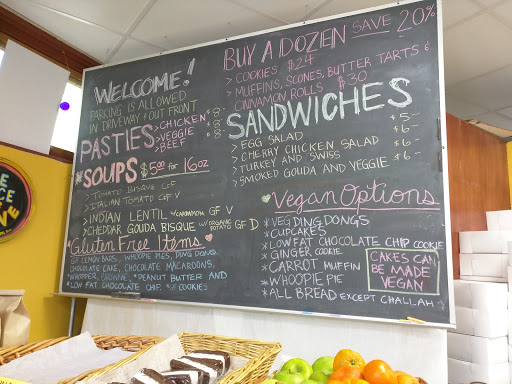 WELCOME!
PARKING IS ALLOWED
IN DRIVEWAY & OUT FRONT
PASTIES
> CHICKEN $8-
> VEGGIE 8-
> BEEF 8-
*SOUPS $5.00 for 16oz
> TOMATO BISQUE GF
> ITALIAN TOMATO GF V
> INDIAN LENTIL W/CARDAMOM GF V
> CHEDDAR GOUDA BISQUE W/ORGANIC POTATO GF
*Gluten Free Items
GF LEMON BARS, WHOOPIE PIES, DING DONGS
CHOCOLATE CAKE, CHOCOLATE MACAROONS,
*WHOPPER BROWNIE *PEANUT BUTTER AND
*LOW FAT CHOCOLATE CHIP GF COOKIES
BUY A DOZEN SAVE 20%
> COOKIES $24
> MUFFINS, SCONES, BUTTER TARTS &
CINNAMON ROLLS $30
SANDWICHES
> EGG SALAD $5-
> CHERRY CHICKEN SALAD $6-
> TURKEY AND SWISS $6-
> SMOKED GOUDA AND VEGGIE $6-
Vegan Options
* VEG DING DONGS
* CUPCAKES
* LOWFAT CHOCOLATE CHIP COOKIE
* GINGER COOKIE
* CARROT MUFFIN
* WHOOPIE PIE
* ALL BREAD EXCEPT CHALLAH
CAKES CAN
BE MADE
VEGAN